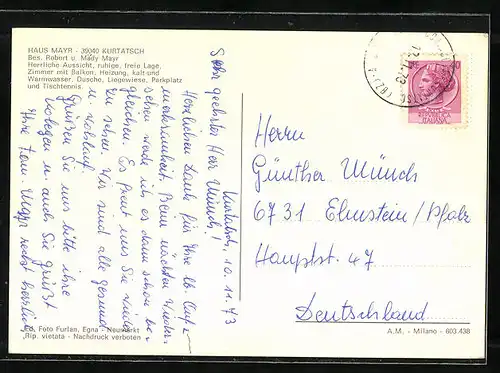 HAUS MAYR - 39040 KURTATSCH
Bes. Robert u. Mädy Mayr
Herrliche Aussicht, ruhige, freie Lage,
Zimmer mit Balkon, Heizung, kalt und
Warmwasser, Dusche, Liegewiese, Parkplatz
und Tischtennis.
Kurtatsch, 10.11.73
Sehr geehrter Herr Münch!
Herzlichen Dank für Ihre lb. Aufmerksamkeit. Beim nächsten
sehen werde ich es dann schon be-
gleichen. Es freut uns Sie wieder
zu sehen. Wir sind alle gesund
u. wohlauf.
Grüßen Sie uns bitte ihre
Kollegen u. auch Sie grüßt
Ihre Fam. Mayr recht herzlich
Herrn
Günther Münch
6731 Elmstein/Pfalz
Hauptst. 47
Deutschland
Ed. Foto Furlan, Egna - Neumarkt
Rip. vietata - Nachdruck verboten
A.M. - Milano - 603.438